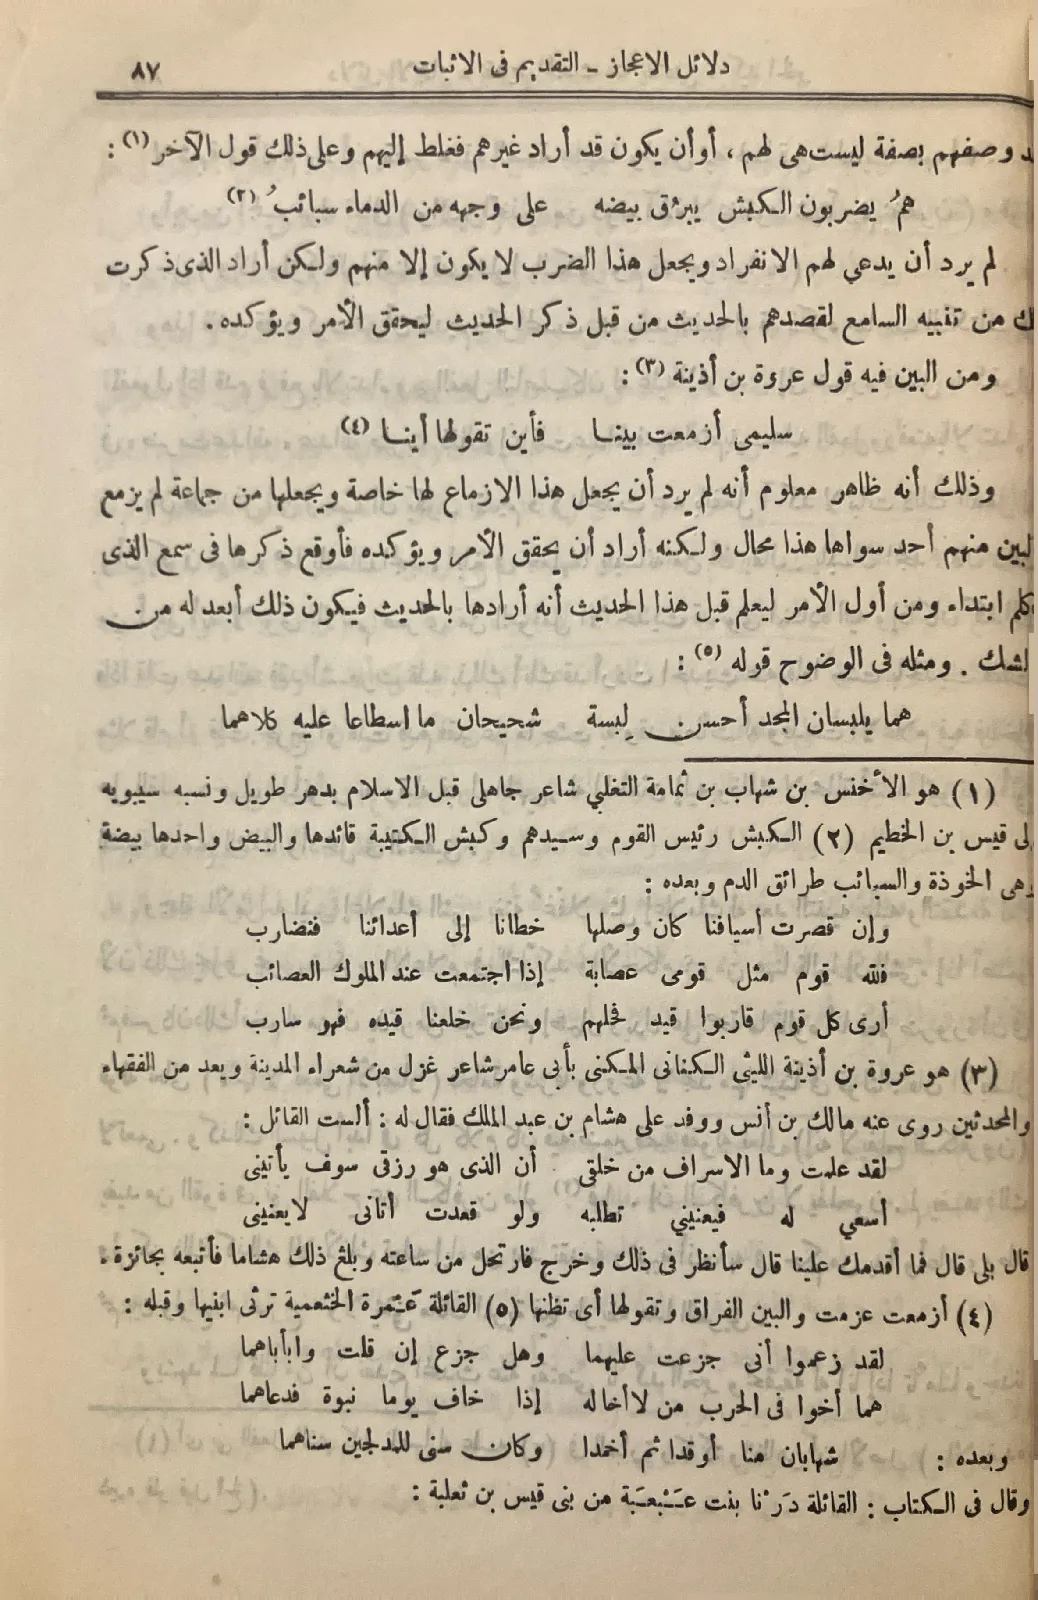 دلائل الاعجاز - التقديم فى الاثبات ٨٧
وصفهم بصفة ليست هى لهم ، أو أن يكون قد أراد غيرهم فغلط إليهم وعلى ذلك قول الآخر (١) :
همُ يضربون الكبش يبرُق بيضه على وجهه من الدماء سبائبُ (٢)
لم يرد أن يدعي لهم الانفراد ويجعل هذا الضرب لا يكون إلا منهم ولكن أراد الذى ذكرت
لك من تنبيه السامع لقصدهم بالحديث من قبل ذكر الحديث ليحقق الأمر ويؤكده .
ومن البين فيه قول عروة بن أذينة (٣) :
سليمى أزمعت بينا فأين تقولها أينا (٤)
وذلك أنه ظاهر معلوم أنه لم يرد أن يجعل هذا الازماع لها خاصة ويجعلها من جماعة لم يزمع
البين منهم أحد سواها هذا محال ولكنه أراد أن يحقق الأمر ويؤكده فأوقع ذكرها فى سمع الذى
كلم ابتداء ومن أول الأمر ليعلم قبل هذا الحديث أنه أرادها بالحديث فيكون ذلك أبعد له من
الشك . ومثله فى الوضوح قوله (٥) :
هما يلبسان المجد أحسن لِبسة شحيحان ما اسطاعا عليه كلاهما
(١) هو الأخنس بن شهاب بن ثمامة التغلبي شاعر جاهلى قبل الاسلام بدهر طويل ونسبه سيبويه
إلى قيس بن الخطيم (٢) الكبش رئيس القوم وسيدهم وكبش الكتيبة قائدها والبيض واحدها بيضة
وهى الخوذة والسبائب طرائق الدم وبعده :
وإن قصرت أسيافنا كان وصلها خطانا إلى أعدائنا فنضارب
فلله قوم مثل قومى عصابة إذا اجتمعت عند الملوك العصائب
أرى كل قوم قاربوا قيد فحلهم ونحن خلعنا قيده فهو سارب
(٣) هو عروة بن أذينة الليثى الكنانى المكنى بأبى عامر شاعر غزل من شعراء المدينة ويعد من الفقهاء
والمحدثين روى عنه مالك بن أنس ووفد على هشام بن عبد الملك فقال له : ألست القائل :
لقد علمت وما الاسراف من خلقى أن الذى هو رزقى سوف يأتينى
أسعي له فيعنيني تطلبه ولو قعدت أتانى لا يعنينى
قال بلى قال فما أقدمك علينا قال سأنظر فى ذلك وخرج فارتحل من ساعته وبلغ ذلك هشاما فأتبعه بجائزة .
(٤) أزمعت عزمت والبين الفراق وتقولها أى تظنها (٥) القائلة عَمْرة الخثعمية ترثى ابنيها وقبله :
لقد زعموا أنى جزعت عليهما وهل جزع إن قلت وابأباهما
هما أخوا فى الحرب من لا أخا له إذا خاف يوما نبوة فدعاهما
وبعده : شهابان منا أوقدا ثم أخمدا وكان سنى للمدلجين سناهما
وقال فى الكتاب : القائلة دَرْنا بنت عَبْعَبَة من بنى قيس بن ثعلبة :